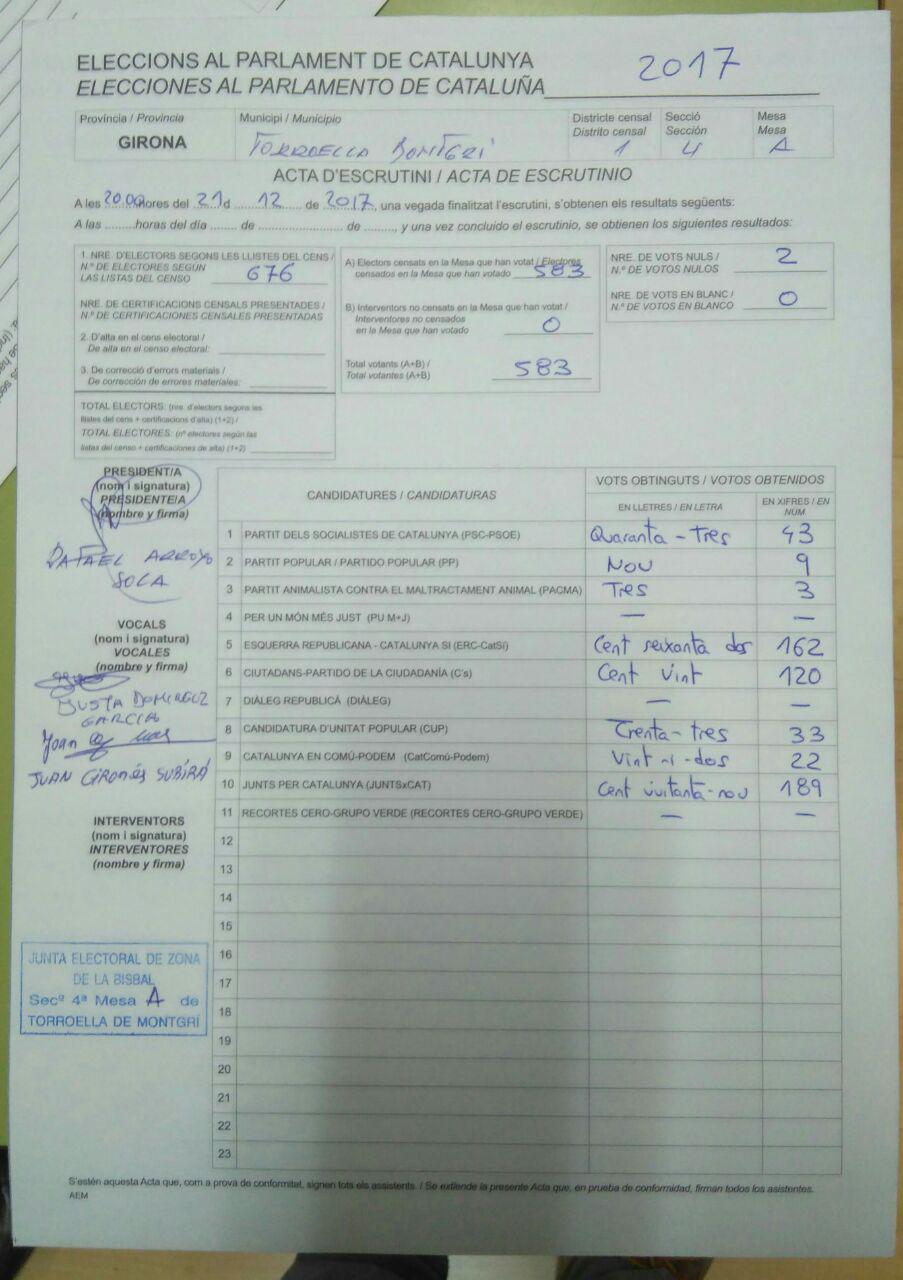 ELECCIONS AL PARLAMENT DE CATALUNYA
ELECCIONES AL PARLAMENTO DE CATALUÑA 2017
Província / Provincia
GIRONA
Municipi / Municipio
TORROELLA MONTGRÍ
Districte censal
Distrito censal
1
Secció
Sección
4
Mesa
Mesa
A
ACTA D'ESCRUTINI / ACTA DE ESCRUTINIO
A les 20.00 hores del 21 d 12 de 2017, una vegada finalitzat l'escrutini, s'obtenen els resultats següents:
A las ........horas del día ...... de .................... de ........, y una vez concluido el escrutinio, se obtienen los siguientes resultados:
1. NRE. D'ELECTORS SEGONS LES LLISTES DEL CENS /
N.º DE ELECTORES SEGÚN
LAS LISTAS DEL CENSO 676
NRE. DE CERTIFICACIONS CENSALS PRESENTADES /
N.º DE CERTIFICACIONES CENSALES PRESENTADAS
2. D'alta en el cens electoral /
De alta en el censo electoral:
3. De correcció d'errors materials /
De corrección de errores materiales:
TOTAL ELECTORS: (nre. d'electors segons les
llistes del cens + certificacions d'alta) (1+2) /
TOTAL ELECTORES: (nº electores según las
listas del censo + certificaciones de alta) (1+2)
A) Electors censats en la Mesa que han votat / Electores
censados en la Mesa que han votado 583
B) Interventors no censats en la Mesa que han votat /
Interventores no censados
en la Mesa que han votado 0
Total votants (A+B) /
Total votantes (A+B) 583
NRE. DE VOTS NULS /
N.º DE VOTOS NULOS 2
NRE. DE VOTS EN BLANC /
N.º DE VOTOS EN BLANCO 0
PRESIDENT/A
(nom i signatura)
PRESIDENTE/A
(nombre y firma)
RAFAEL ARROYO
SOLA
VOCALS
(nom i signatura)
VOCALES
(nombre y firma)
JUSTA DOMINGUEZ
GARCIA
Joan
JUAN GIRONÉS SUBIRÁ
INTERVENTORS
(nom i signatura)
INTERVENTORES
(nombre y firma)
JUNTA ELECTORAL DE ZONA
DE LA BISBAL
Secª 4ª Mesa A de
TORROELLA DE MONTGRÍ
CANDIDATURES / CANDIDATURAS
VOTS OBTINGUTS / VOTOS OBTENIDOS
EN LLETRES / EN LETRA
EN XIFRES / EN
NÚM.
1 PARTIT DELS SOCIALISTES DE CATALUNYA (PSC-PSOE) Quaranta-Tres 43
2 PARTIT POPULAR / PARTIDO POPULAR (PP) Nou 9
3 PARTIT ANIMALISTA CONTRA EL MALTRACTAMENT ANIMAL (PACMA) Tres 3
4 PER UN MÓN MÉS JUST (PU M+J) — —
5 ESQUERRA REPUBLICANA - CATALUNYA SI (ERC-CatSí) Cent seixanta dos 162
6 CIUTADANS-PARTIDO DE LA CIUDADANÍA (C's) Cent Vint 120
7 DIÀLEG REPUBLICÀ (DIÀLEG) — —
8 CANDIDATURA D'UNITAT POPULAR (CUP) Trenta-tres 33
9 CATALUNYA EN COMÚ-PODEM (CatComú-Podem) Vint-i-dos 22
10 JUNTS PER CATALUNYA (JUNTSxCAT) Cent vuitanta-nou 189
11 RECORTES CERO-GRUPO VERDE (RECORTES CERO-GRUPO VERDE) — —
12
13
14
15
16
17
18
19
20
21
22
23
S'estén aquesta Acta que, com a prova de conformitat, signen tots els assistents. / Se extiende la presente Acta que, en prueba de conformidad, firman todos los asistentes.
AEM